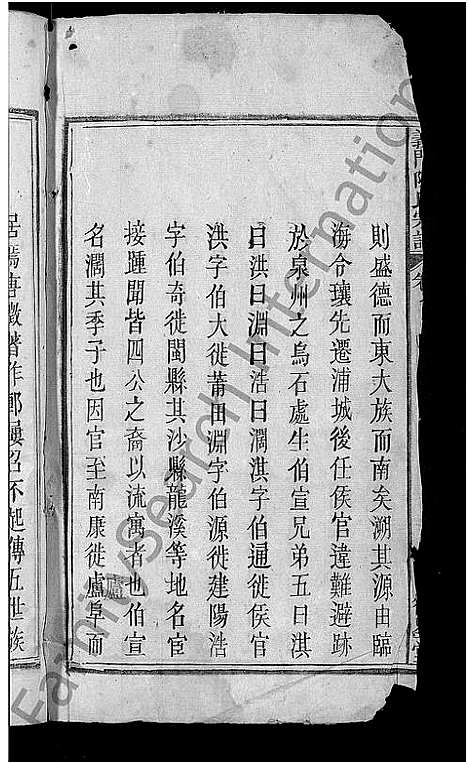 義門陳氏宗譜
則盛德而東大族而南矣溯其源由臨
海令瓌先遷浦城後任侯官違難避跡
於泉州之烏石處生伯宣兄弟五曰淇
曰洪曰淵曰浩曰濶淇字伯通徙侯官
洪字伯大徙莆田淵字伯源徙建陽浩
字伯奇徙閩縣其沙縣龍溪等地名宦
接踵聞皆四公之裔以流寓者也伯宣
名濶其季子也因官至南康徙廬阜而
居焉唐徵著作郎屢召不起傳五世族
FamilySearch International